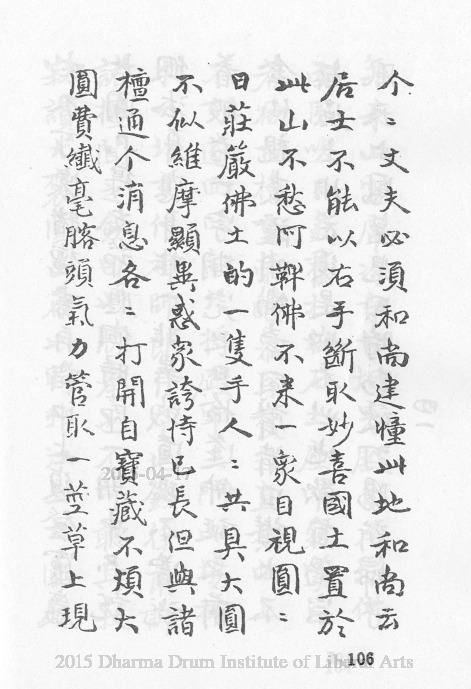 个〻丈夫必須和尚建幢此地和尚云
居士不能以右手斷取妙喜國土置於
此山不愁阿鞞佛不来一衆目視圓〻
日莊嚴佛土的一隻手人〻共具大圓
不似維摩顯異惑衆誇恃已長但與諸
檀通个消息各〻打開自寶藏不煩大
圓費纖毫胳頭氣力管取一莖草上現
106
2015 Dharma Drum Institute of Liberal Arts